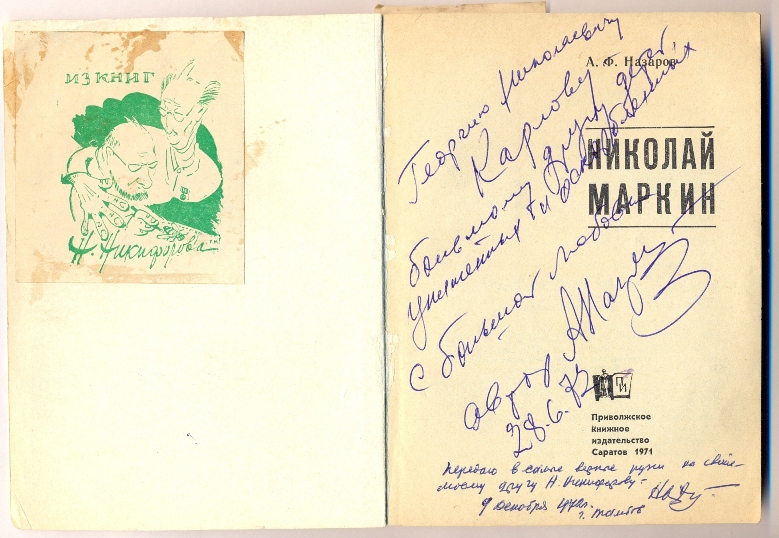 ИЗ КНИГ
Н. Никифорова
А. Ф. Назаров
НИКОЛАЙ
МАРКИН
Георгию Николаевичу
Карлову
большому другу детей
униженных и оскорбленных
с большой любовью
автор АНазаров
28.6.72
Приволжское
Книжное
издательство
Саратов 1971
Передаю в самые верные руки
моему другу Н. Никифорову.
9 декабря
г. Тамбов